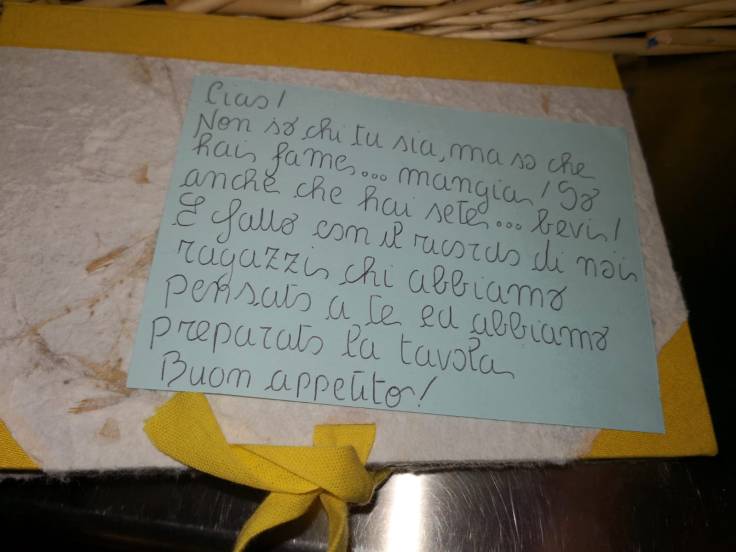 Ciao!
Non so chi tu sia, ma so che
hai fame... mangia! So
anche che hai sete... bevi!
E fallo con il ricordo di noi
ragazzi, chi abbiamo
pensato a te ed abbiamo
preparato la tavola
Buon appetito!